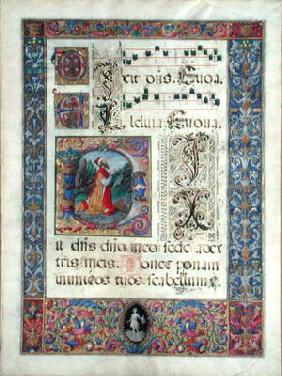 Dixit dñs. Euoua.
Alleluia. Euoua.
DIX
it dñs dño meo sede a dex
tris meis. Donec ponam
inimicos tuos scabellum